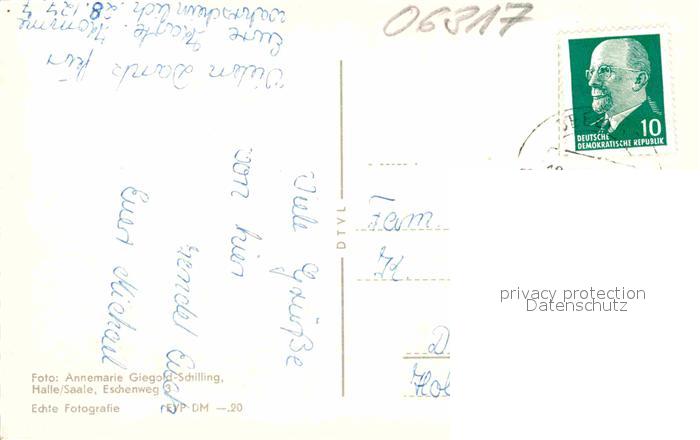 06317
Vielen Dank für
Eure Karte. Komme
wahrscheinlich
Viele Grüße
von hier
sendet Euch
Euer Michael
DTVL
Fam.
K.
10
DEUTSCHE
DEMOKRATISCHE REPUBLIK
privacy protection
Datenschutz
Foto: Annemarie Giegold-Schilling,
Halle/Saale, Eschenweg 3
Echte Fotografie EVP DM —.20